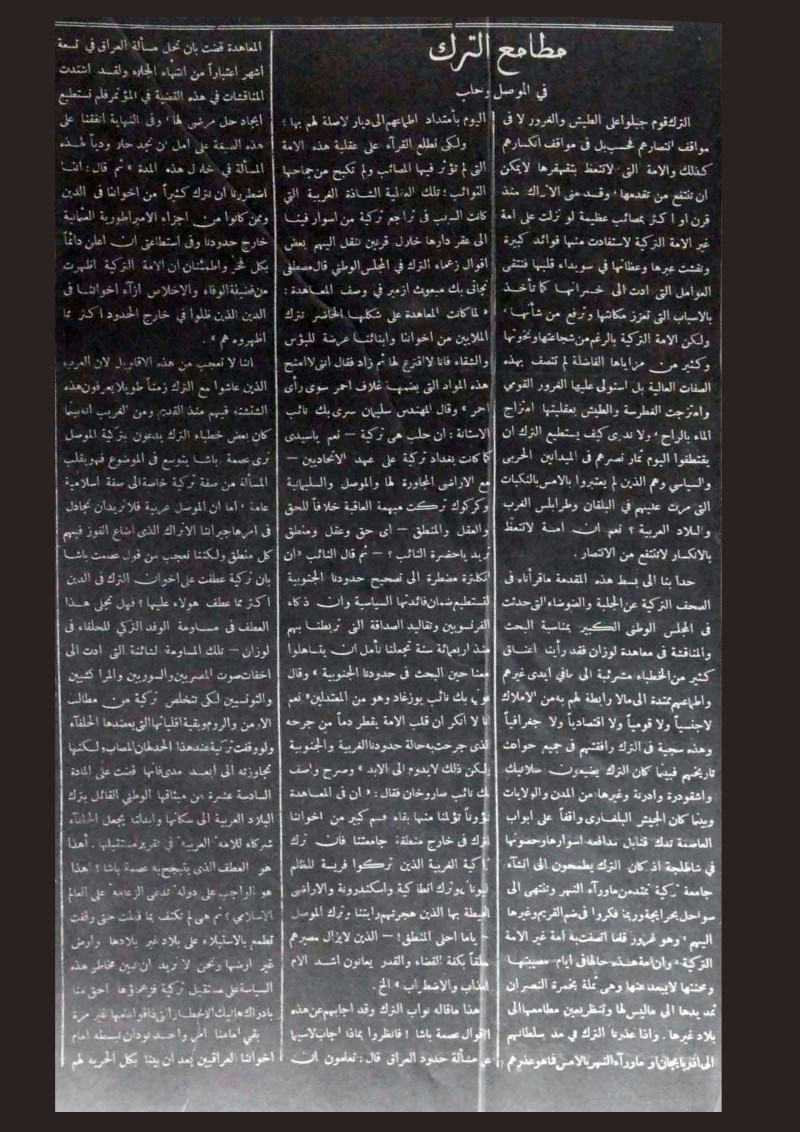 مطامع الترك
في الموصل وحلب
الترك قوم جبلوا على الطيش والغرور لا فى
مواقف انتصارهم فحسب بل فى مواقف انكسارهم
كذلك والامة التى لا تتعظ بتقهقرها لا يمكن
ان تنتفع من تقدمها وقد منى الاتراك منذ
قرن او اكثر بمصائب عظيمة لو نزلت على امة
غير الامة التركية لاستفادت منها فوائد كبيرة
ونقشت عبرها وعظاتها في سويداء قلبها فتتقى
العوامل التى ادت الى خسرانها كما تأخذ
بالاسباب التى تعزز مكانتها وترفع من شأنها ،
ولكن الامة التركية بالرغم من شجاعتها ونخوتها
وكثير من مزاياها الفاضلة لم تتصف بهذه
الصفات العالية بل استولى عليها الغرور القومي
وامتزجت الغطرسة والطيش بعقليتها امتزاج
الماء بالراح ، ولا ندرى كيف يستطيع الترك ان
يقتطفوا اليوم ثمار نصرهم فى الميدانين الحربى
والسياسي وهم الذين لم يعتبروا بالامس بالنكبات
التى مرت عليهم في البلقان وطرابلس الغرب
والبلاد العربية ؟ نعم ان امة لاتتعظ
بالانكسار لا تنتفع من الانتصار .
حدا بنا الى بسط هذه المقدمة ماقرأناه فى
الصحف التركية عن الجلبة والضوضاء التى حدثت
فى المجلس الوطنى الكبير بمناسبة البحث
والمناقشة في معاهدة لوزان فقد رأينا اعناق
كثير من الخطباء مشرئبة الى مافي ايدى غيرهم
واطماعهم ممتدة الى مالا رابطة لهم به من الاملاك
لاجنسياً ولا قومياً ولا اقتصادياً ولا جغرافياً
وهذه سجية فى الترك رافقتهم فى جميع حوادث
تاريخهم فبينما كان الترك يضيعون سلانيك
واشقودرة وادرنة وغيرها من المدن والولايات
وبينما كان الجيش البلغارى واقفاً على ابواب
العاصمة تدك قنابل مدافعه اسوارها وحصونها
في شاطلجة اذ كان الترك يطمحون الى انشآء
جامعة تركية تمتد من ماورآء النهر وتنتهى الى
سواحل بحر ايجة وربما فكروا فى ضم القريم وغيرها
اليهم ، وهو غرور قلما اتصفت به امة غير الامة
التركية ، وان امة هذه حالها فى ايام مصيبتها
ومحنتها لا يبعد عنها وهى ثملة بخمرة النصر ان
تمد يدها الى ماليس لها وتنظر بعين مطامعها الى
بلاد غيرها . واذا عذرنا الترك فى مد سلطانهم
الى اذربايجان او ماورآء النهر بالامس فما هو عذرهم
اليوم بامتداد اطماعهم الى ديار لاصلة لهم بها ؟
ولكى نطلع القرآء على عقلية هذه الامة
التى لم تؤثر فيها المصائب ولم تكبح من جماحها
النوائب ؛ تلك العقلية الشاذة الغريبة التى
كانت السبب فى تراجع تركية من اسوار فينا
الى عقر دارها خلال قرنين ننقل اليهم بعض
اقوال زعماء الترك في المجلس الوطنى قال مصطفى
نجاتى بك مبعوث ازمير في وصف المعاهدة :
« لما كانت المعاهدة على شكلها الحاضر تترك
الملايين من اخواننا وابنائنا عرضة للبؤس
والشقاء فانا لا اقترع لها ثم زاد فقال اننى لا امنح
هذه المواد التى يضمها غلاف احمر سوى رأى
احمر » وقال المهندس سليمان سرى بك نائب
الاستانة : ان حلب هى تركية — نعم ياسيدى
كما كانت بغداد تركية على عهد الاتحاديين —
مع الاراضى المجاورة لها والموصل والسليمانية
وكركوك تركت مبهمة العاقبة خلافاً للحق
والعقل والمنطق — اى حق وعقل ومنطق
تريد ياحضرة النائب ؟ — ثم قال النائب « ان
انكلترة مضطرة الى تصحيح حدودنا الجنوبية
لتستطيع ضمان فائدتها السياسية وان ذكاء
الفرنسويين وتقاليد الصداقة التى تربطنا بهم
منذ اربعمائة سنة تجعلنا نأمل ان يتساهلوا
معنا حين البحث فى حدودنا الجنوبية » وقال
بك نائب يوزغاد وهو من المعتدلين « نعم
انا لا انكر ان قلب الامة يقطر دماً من جرحه
الذى جرحت به حالة حدودنا الغربية والجنوبية
ولكن ذلك لا يدوم الى الابد » وصرح واصف
بك نائب صاروخان فقال : « ان فى المعاهدة
شؤوناً تؤلمنا منها بقاء قسم كبير من اخواننا
الترك فى خارج منطقة جامعتنا فان ترك
تراكية الغربية الذين تركوا فريسة للمظالم
وترك انطاكية واسكندرونة والاراضى
المحيطة بها الذين هجرتهم رايتنا وترك الموصل
— ياما احلى المنطق ! — الذين لايزال مصيرهم
معلقاً بكفة القضاء والقدر يعانون اشد الام
العذاب والاضطراب » الخ .
هذا ماقاله نواب الترك وقد اجابهم عن هذه
الاقوال عصمة باشا ! فانظروا بماذا اجاب لاسيما
عن مسألة حدود العراق قال : تعلمون ان
المعاهدة قضت بان تحل مسألة العراق فى تسعة
اشهر اعتباراً من انتهاء الجلاء ولقد اشتدت
المناقشات في هذه القضية في المؤتمر فلم نستطيع
ايجاد حل مرضى لها ، وفى النهاية اتفقنا على
هذه الصيغة على امل ان نجد حلا ودياً لهذه
المسألة في خلال هذه المدة » ثم قال : اننا
اضطررنا ان نترك كثيراً من اخواننا في الدين
وممن كانوا من اجزاء الامبراطورية العثمانية
خارج حدودنا وفى استطاعتى ان اعلن دائماً
بكل فخر واطمئنان ان الامة التركية اظهرت
من فضيلة الوفاء والاخلاص ازآء اخواننا فى
الدين الذين ظلوا في خارج الحدود اكثر مما
اظهروه هم » .
اننا لا نعجب من هذه الاقاويل لان العرب
الذين عاشوا مع الترك زمناً طويلا يعرفون هذه
الشنشنة فيهم منذ القديم ومن الغريب انه بينما
كان بعض خطباء الترك يدعون بتركية الموصل
ترى عصمة باشا يتوسع فى الموضوع فهو يقلب
المسألة من صفة تركية خاصة الى صفة اسلامية
عامة ، اما ان الموصل عربية فلا نريد ان نجادل
فى امرها جيراننا الاتراك الذى اضاع الفوز فيهم
كل منطق ولكننا نعجب من قول عصمت باشا
بان تركية عطفت على اخوان الترك فى الدين
اكثر مما عطف هولاء عليها ؟ فهل تجلى هذا
العطف فى مساومة الوفد التركي للحلفاء فى
لوزان — تلك المساومة الشائنة التى ادت الى
اخفات صوت المصريين والسوريين والمراكشيين
والتونسيين لكى تتخلص تركية من مطالب
الارمن والروم وبقية اقلياتها التى يعضدها الحلفآء
ولو وقفت تركية عند هذا الحد لهان المصاب ولكنها
تجاوزته الى ابعد مدى فانها قضت على المادة
السادسة عشرة من ميثاقها الوطني القائل بترك
البلاد العربية الى سكانها وابدلته بجعل الحلفآء
شركاء للامة العربية فى تقرير مستقبلها . أهذا
هو العطف الذى يتبجح به عصمة باشا ؟ أهذا
هو الواجب على دولة تدعى الزعامة على العالم
الاسلامي ؟ ثم هى لم تكتف بما قبلت حتى وقفت
تطمع بالاستيلاء على بلاد غير بلادها وارض
غير ارضها ونحن لا نريد ان نبين مخاطر هذه
السياسة على مستقبل تركية فزعماؤها احق منا
بادراك هاتيك الاخطار التى ذاقوا طعمها غير مرة
بقى امامنا امر واحد نود ان نبسطه امام
اخواننا العراقيين بعد ان بينا بكل الحرية لهم